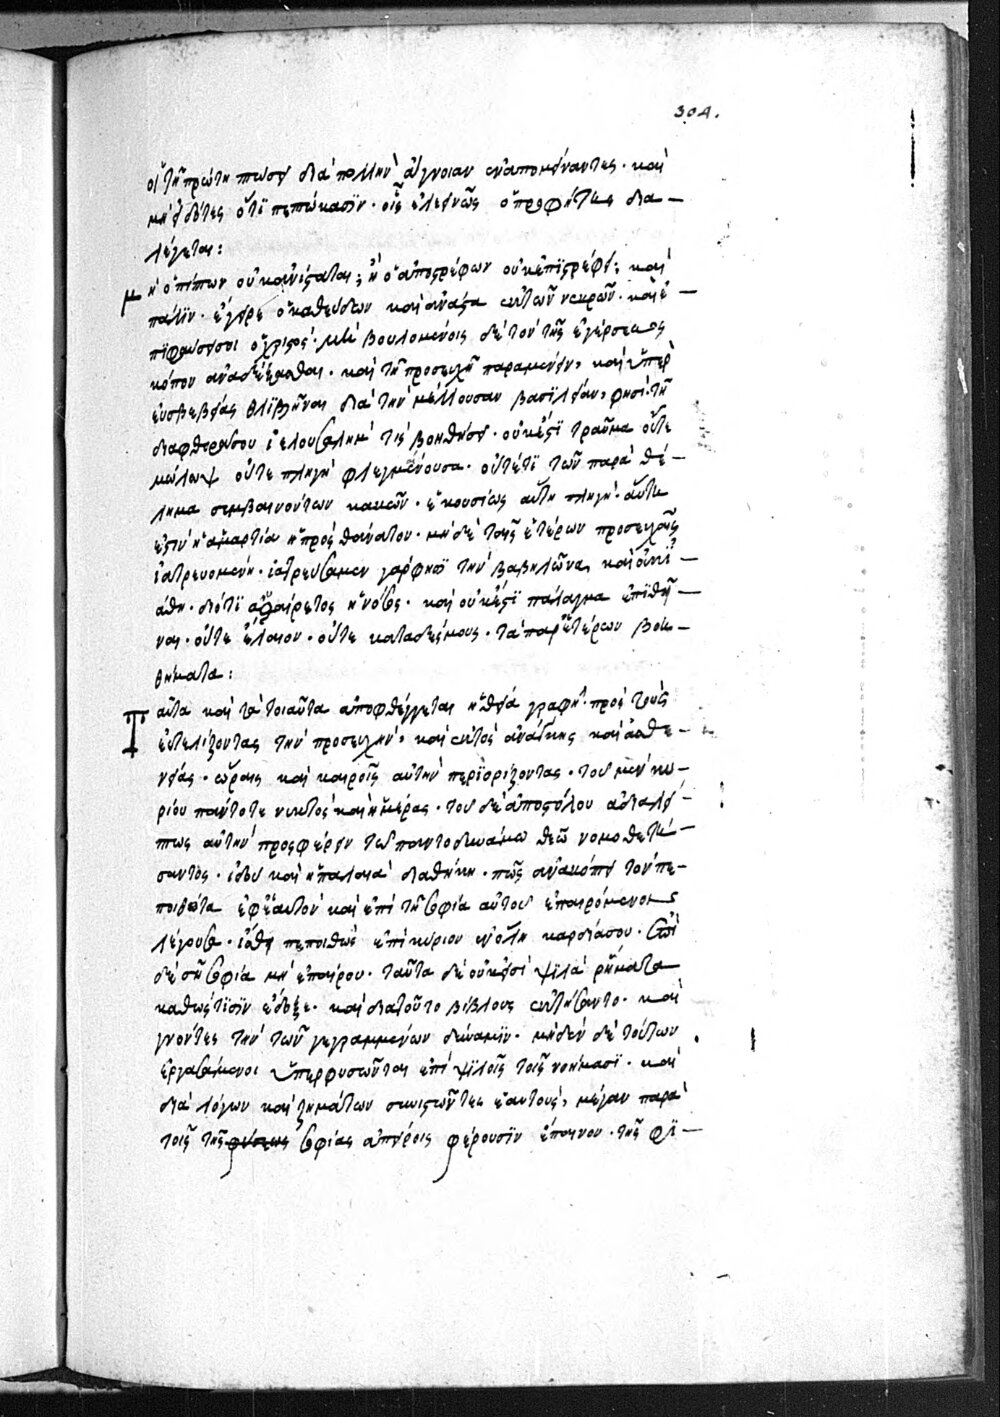 304.
οἱ τῇ πρώτῃ πτώσει διὰ πολλὴν ἄγνοιαν ἐναπομείναντες. καὶ
μὴ εἰδότες ὅτι πεπτώκασϊν. οἷς ἐλεεινῶς ὁ προφήτης δια
λέγεται:
μὴ ὁ πίπτων οὐκ ἀνίσταται; ἢ ὁ ἀποστρέφων οὐκ ἐπϊστρέφει; καὶ
πάλϊν. ἔγειρε ὁ καθεύδων καὶ ἀνάστα ἐκ τῶν νεκρῶν. καὶ ἐ
πϊφαύσει σοι ὁ χριστός. μὴ βουλομένοις δὲ τὸν τῆς ἐγέρσεως
κόπον ἀναδέξασθαι. καὶ τῇ προσευχῇ παραμένειν, καὶ ὑπὲρ
εὐσεβείας θλιβῆναι διὰ τὴν μέλλουσαν βασϊλείαν, φησί. τῇ
διαφθορᾷ σου ἱερουσαλὴμ τίς βοηθήσει. οὐκ ἔστϊ τραῦμα οὔτε
μώλωψ οὔτε πληγὴ φλεγμαίνουσα. οὔτέ τϊ τῶν παρὰ θέ
λημα συμβαινόντων κακῶν. ἑκουσίως αὕτη πληγή. αὕτη
ἐστὶν ἡ ἁμαρτία ἡ πρὸς θάνατον. μηδὲ ταῖς ἑτέρων προσευχαῖς
ἰατρευομένη. ἰατρεύσαμεν γάρ φησϊ τὴν βαβυλῶνα, καὶ οὐκ ἰ
άθη. διότϊ αὐθαίρετος ἡ νόσος. καὶ οὐκ ἔστϊ μάλαγμα ἐπϊθεῖ
ναι. οὔτε ἔλαιον. οὔτε καταδέσμους. τὰ παρ' ἑτέρων βοη
θήματα:
Ταῦτα καὶ τὰ τοιαῦτα ἀποφθέγγεται ἡ θεία γραφὴ πρὸς τοὺς
εὐτελίζοντας τὴν προσευχήν, καὶ ἐκτὸς ἀνάγκης καὶ ἀσθε
νείας. ὥραις καὶ καιροῖς αὐτὴν περϊορίζοντας. τοῦ μὲν κυ
ρίου πάντοτε νυκτὸς καὶ ἡμέρας. τοῦ δὲ ἀποστόλου ἀδιαλεί
πτως αὐτὴν προσφέρειν τῷ παντοδυνάμῳ θεῷ νομοθετή
σαντος. ἰδοὺ καὶ ἡ παλαιὰ διαθήκη. πῶς ἀνακόπτει τὸν πε
ποιθότα ἐφ' ἑαυτὸν καὶ ἐπὶ τῇ σοφίᾳ αὐτοῦ ἐπαιρόμενον
λέγουσα. ἴσθι πεποιθὼς ἐπὶ κύριον ἐν ὅλῃ καρδίᾳ σου. ἐπὶ
δὲ σῇ σοφίᾳ μὴ ἐπαίρου. ταῦτα δὲ οὐκ εἰσὶ ψϊλὰ ῥήματα
καθώς τϊσϊν ἔδοξε. καὶ διὰ τοῦτο βίβλους ἐκτήσαντο. καὶ
γνόντες τὴν τῶν γεγραμμένων δύναμϊν. μηδὲν δὲ τούτων
ἐργασάμενοι ὑπερφυσῶνται ἐπὶ ψϊλοῖς τοῖς νοήμασϊ. καὶ
διὰ λόγων καὶ ζητημάτων συνιστῶντες ἑαυτούς, μέγαν παρὰ
τοῖς τῆς φύσεως σοφίας ἀπείροις φέρουσϊν ἔπαινον. τῆς φϊ